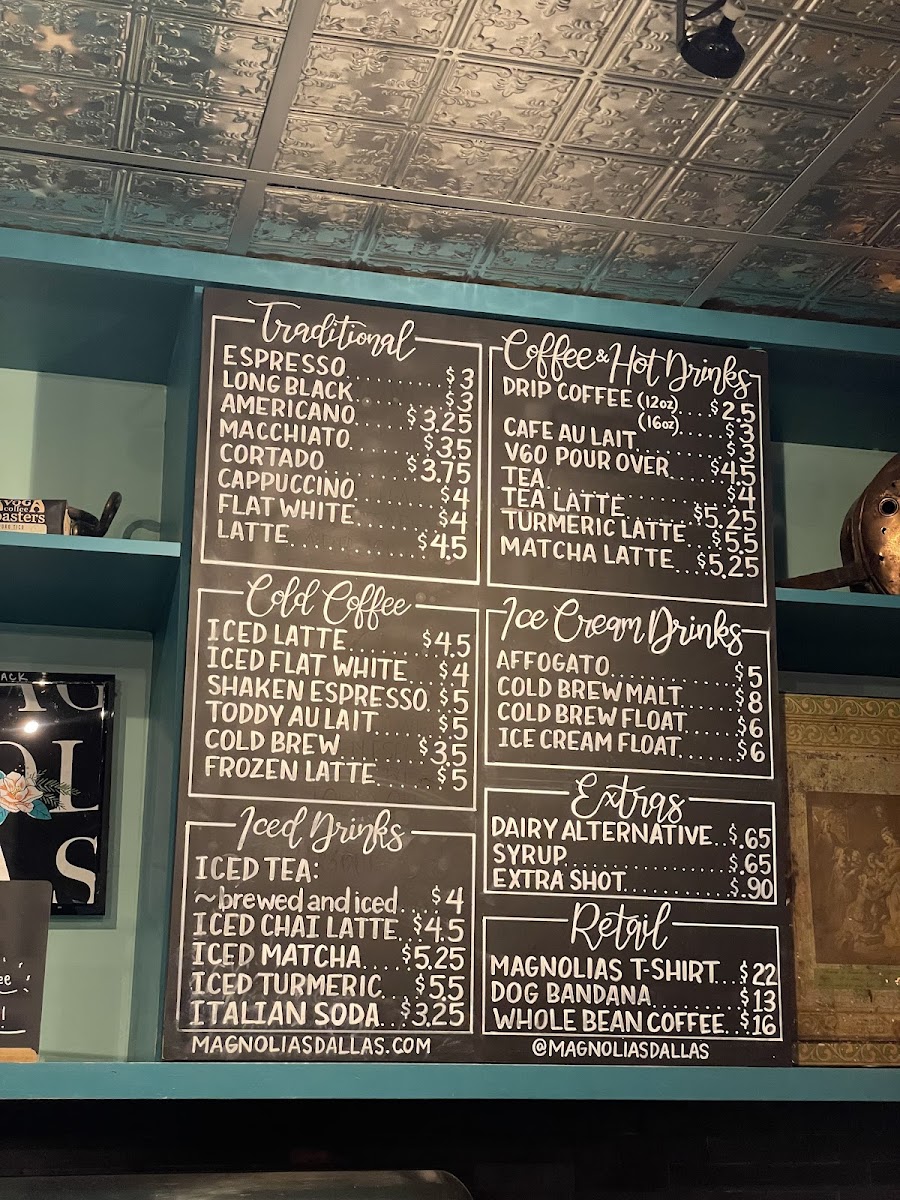 Traditional
ESPRESSO......... $3
LONG BLACK......... $3
AMERICANO...... $3.25
MACCHIATO......... $3.5
CORTADO......... $3.75
CAPPUCCINO......... $4
FLAT WHITE......... $4
LATTE............ $4.5
Cold Coffee
ICED LATTE......... $4.5
ICED FLAT WHITE... $4
SHAKEN ESPRESSO. $5
TODDY AU LAIT...... $5
COLD BREW......... $3.5
FROZEN LATTE...... $5
Iced Drinks
ICED TEA:
~brewed and iced.. $4
ICED CHAI LATTE.. $4.5
ICED MATCHA.... $5.25
ICED TURMERIC... $5.5
ITALIAN SODA.. $3.25
MAGNOLIASDALLAS.COM
Coffee & Hot Drinks
DRIP COFFEE (12oz).... $2.5
(16oz)..... $3
CAFE AU LAIT......... $3
V60 POUR OVER.... $4.5
TEA............ $4
TEA LATTE...... $5.25
TURMERIC LATTE... $5.5
MATCHA LATTE... $5.25
Ice Cream Drinks
AFFOGATO......... $5
COLD BREW MALT...... $8
COLD BREW FLOAT..... $6
ICE CREAM FLOAT..... $6
Extras
DAIRY ALTERNATIVE.. $.65
SYRUP............ $.65
EXTRA SHOT......... $.90
Retail
MAGNOLIAS T-SHIRT... $22
DOG BANDANA......... $13
WHOLE BEAN COFFEE.. $16
@MAGNOLIASDALLAS
coffee
oasters
ACK
OL
AS
ee
!